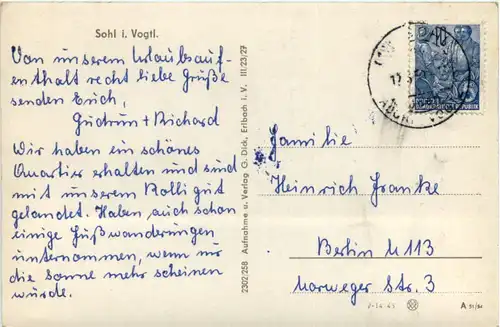 Sohl i. Vogtl.
Von unserem Urlaubsauf-
enthalt recht liebe Grüße
senden Euch,
Gudrun + Richard
Wir haben ein schönes
Quartier erhalten und sind
mit unserem Rolli gut
gelandet. Haben auch schon
einige Fußwanderungen
unternommen, wenn nur
die Sonne mehr scheinen
würde.
2302/258 Aufnahme u. Verlag G. Dick, Erlbach i. V. III/23/27
Familie
Heinrich Franke
Berlin N 113
Norweger Str. 3